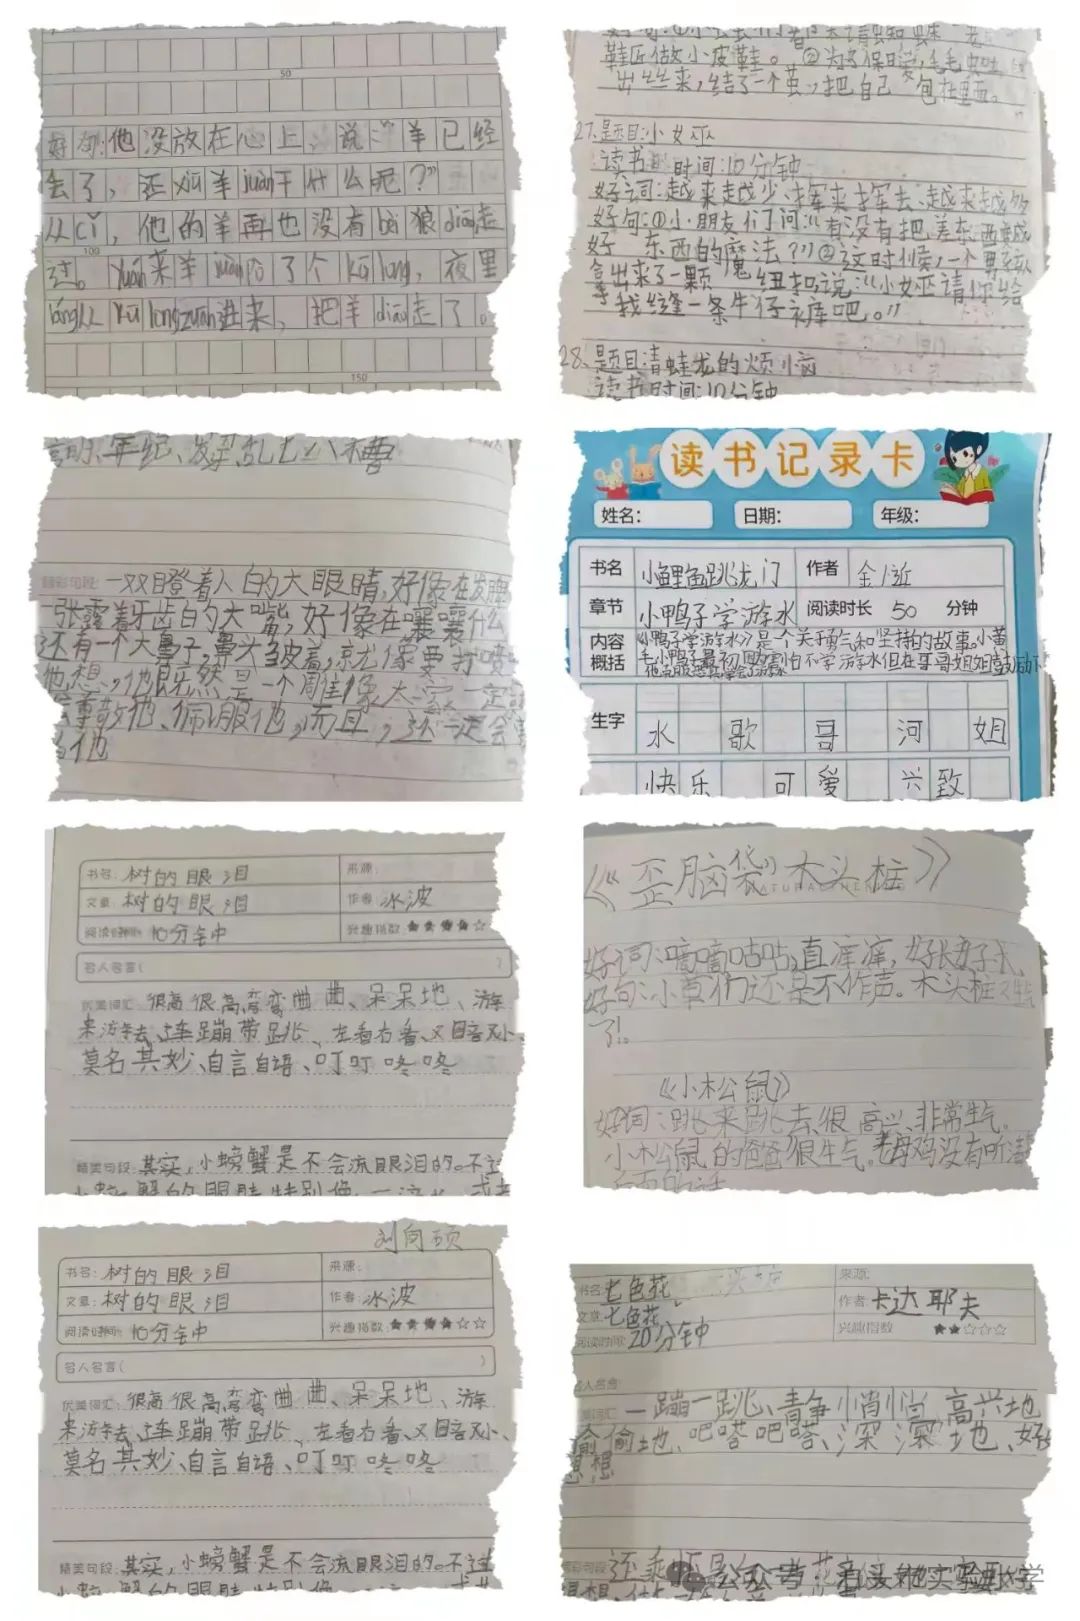 50
好句:他没放在心上,说:“羊已经
去了,还xiū羊juàn干什么呢?”
从cǐ,他的羊再也没有bèi狼diāo走
过。yuán来羊juàn破了个kū long,夜里
láng从kū long zuān进来,把羊diāo走了。
100
150
鞋匠做小皮鞋。②为了保暖,毛毛虫吐
出丝来,结了一个茧,把自己包在里面。
27.题目:小女巫
读书时间:10分钟
好词:越来越少、挥来挥去、越来越多
好句:①小朋友们问:“有没有把差东西变成
好东西的魔法?”②这时候,一个男孩
拿出来了一颗纽扣说:“小女巫请你给
我缝一条牛仔裤吧。”
28.题目:青蛙龙的烦恼
读书时间:10分钟
年纪、发梁、乱七八糟
精彩句段:一双瞪着人的大眼睛,好像在发脾
一张露着牙齿的大嘴,好像在嚷嚷什么
还有一个大鼻子,鼻头皱着,就像要打喷
他想,他既然是一个周佳像大家一定
尊敬他、佩服他,而且,还一定会
当他
读书记录卡
姓名: 日期: 年级:
书名 小鲤鱼跳龙门 作者 金近
章节 小鸭子学游水 阅读时长 50 分钟
内容概括 《小鸭子学游水》是一个关于勇气和坚持的故事。小黄
毛小鸭子最初因害怕不学游水但在哥哥姐姐鼓励下
生字 水 歌 哥 河 姐
快乐 可爱 兴致
书名:树的眼泪 来源:
文章:树的眼泪 作者:冰波
阅读时间:10分钟 兴趣指数:★★★★☆
名人名言( )
优美词汇:很高很高、弯弯曲曲、呆呆地、游
来游去、连蹦带跳、左看右看、又暗又小、
莫名其妙、自言自语、叮叮咚咚
精美句段:其实,小螃蟹是不会流眼泪的。不过
小螃蟹的眼睛特别像
《“歪脑袋”木头桩》
好词:嘀嘀咕咕,直痒痒,好长好长
好句:小草们还是不作声。木头桩又生气
了!。
《小松鼠》
好词:跳来跳去、很高兴、非常生气。
小松鼠的爸爸很生气。老母鸡没有听清
刘向硕
书名:树的眼泪 来源:
文章:树的眼泪 作者:冰波
阅读时间:10分钟 兴趣指数:★★★★☆☆
名人名言( )
优美词汇:很高很高、弯弯曲曲、呆呆地、游
来游去、连蹦带跳、左看右看、又暗又小、
莫名其妙、自言自语、叮叮咚咚
精美句段:其实,小螃蟹是不会流眼泪的。不过
小螃蟹的眼睛特别像
书名:七色花 来源:
文章:七色花 作者:卡达耶夫
阅读时间:20分钟 兴趣指数 ★★☆☆☆
名人名言:
一蹦一跳、静悄悄、高兴地
偷偷地、吧嗒吧嗒、深深地、好
想想
公众号